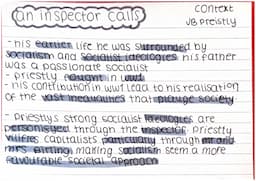 an inspector calls
context
JB Preistly
- his earlier life he was surrounded by
socialism and socialist ideologies his father
was a passionate socialist
- priestly fought in ww1
- his contribution in ww1 lead to his realisation
of the vast inequalities that plauge society
- Priestlys strong socialist ideologies are
personisyed through the inspector priestly
vilifies capitalists particularly through mr and
mrs birling making socialism seem a more
favourable societal approach